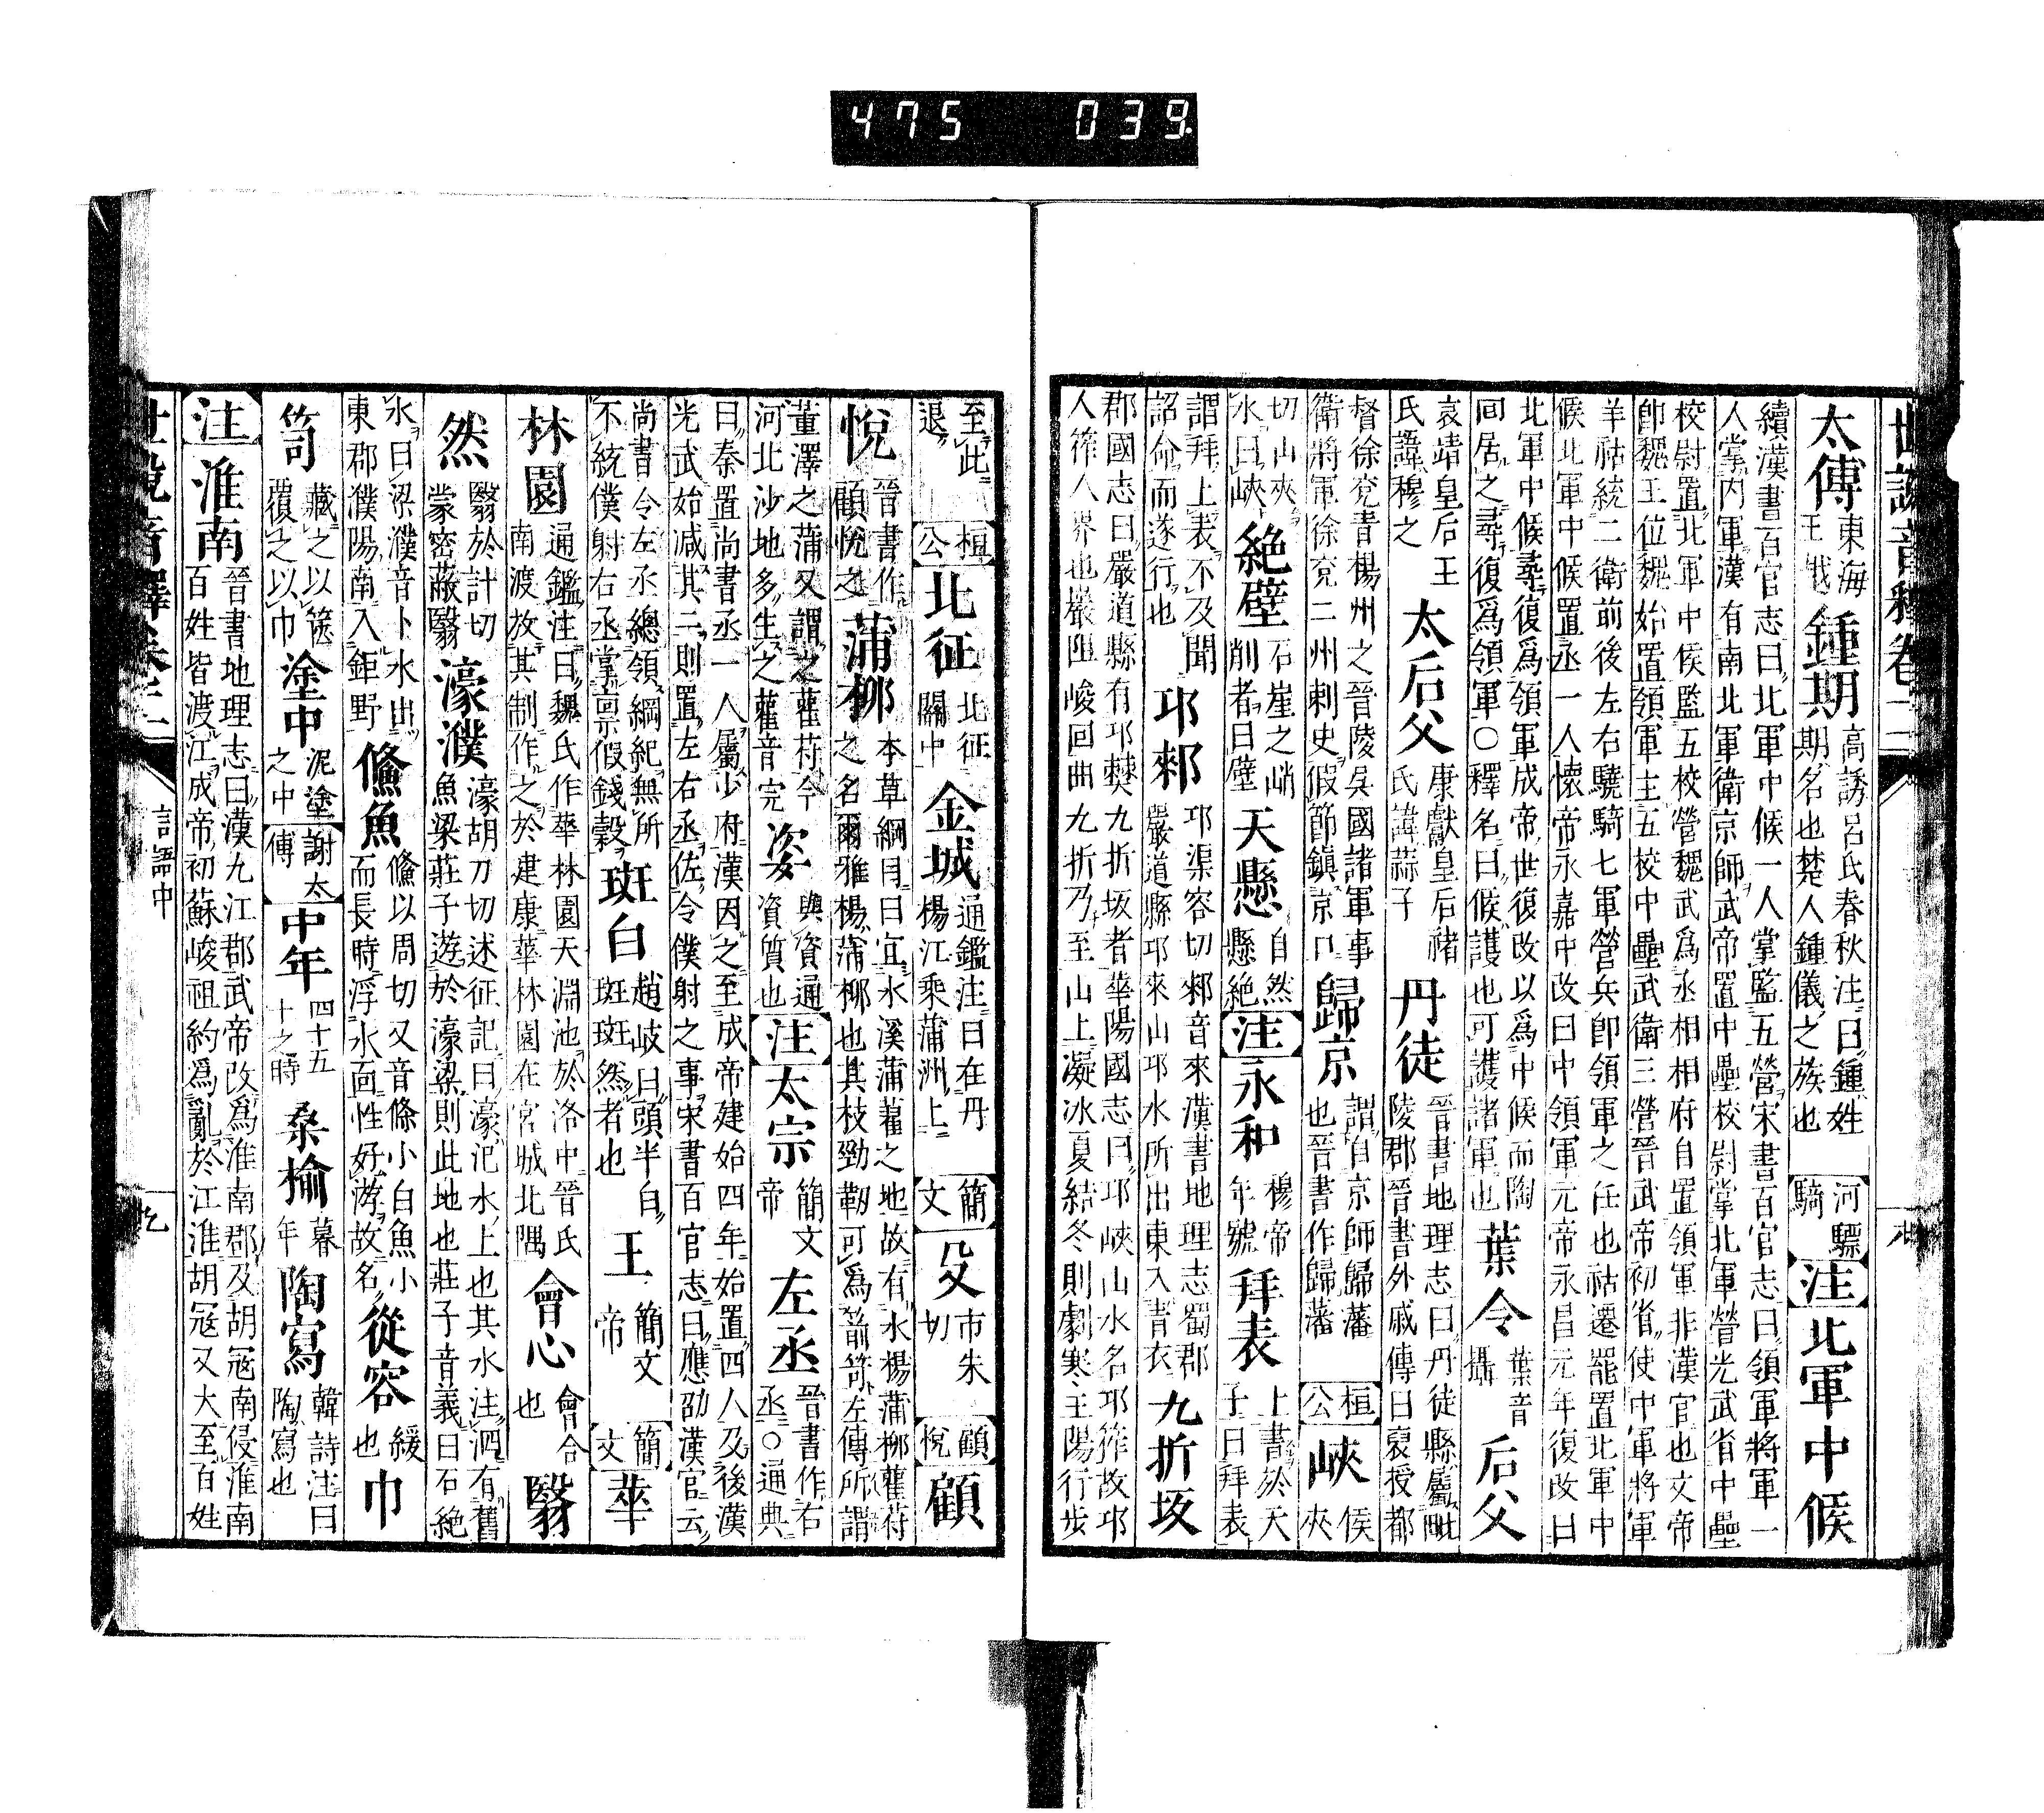 475 039.
世說音釋卷二
八
太傅 東海王戩 鍾期 高誘呂氏春秋注曰鍾姓期名也楚人鍾儀之族也 河驃騎 注 北軍中候
續漢書百官志曰北軍中候一人掌監五營宋書百官志曰領軍將軍一
人掌内軍漢有南北軍衛京師武帝置中壘校尉掌北軍營光武省中壘
校尉置北軍中候監五校營魏武爲丞相相府自置領軍非漢官也文帝
卽魏王位魏始置領軍主五校中壘武衛三營晉武帝初省使中軍將軍
羊祜統二衛前後左右驍騎七軍營兵卽領軍之任也祜遷罷置北軍中
候北軍中候置丞一人懷帝永嘉中改曰中領軍元帝永昌元年復改曰
北軍中候尋復爲領軍成帝世復改以爲中候而陶
回居之尋復爲領軍○釋名曰候護也可護諸軍也 葉令 葉音攝 后父
哀靖皇后王氏諱穆之 太后父 康獻皇后褚氏諱蒜子 丹徒 晉書地理志曰丹徒縣屬毗陵郡晉書外戚傳曰裒授都
督徐兗青楊州之晉陵吳國諸軍事
衛將軍徐兗二州刺史假節鎮京口 歸京 謂自京師歸藩也晉書作歸藩 桓公 峽 侯夾
切山夾水曰峽 絶壁 石崖之峭削者曰壁 天懸 自然懸絶 注 永和 穆帝年號 拜表 上書於天子曰拜表
謂拜上表不及聞詔命而遂行也 邛郲 邛渠容切郲音來漢書地理志蜀郡嚴道縣邛來山邛水所出東入青衣 九折坂
郡國志曰嚴道縣有邛僰九折坂者華陽國志曰邛峽山水名邛筰故邛
人筰人界也巖阻峻回曲九折乃至山上凝冰夏結冬則劇寒王陽行步
至此退 桓公 北征 北征關中 金城 通鑑注曰在丹楊江乘蒲洲上 簡文 殳 市朱切 顧悅 顧
悅 晉書作顧悅之 蒲柳 本草綱目曰宜水溪蒲雚之地故有水楊蒲柳雚苻之名爾雅楊蒲柳也其枝勁韌可爲箭笴左傳所謂
董澤之蒲又謂之雚苻今
河北沙地多生之雚音完 姿 與資通資質也 注 太宗 簡文帝 左丞 晉書作右丞○通典
曰秦置尚書丞一人屬少府漢因之至成帝建始四年始置四人及後漢
光武始减其二則置左右丞佐令僕射之事宋書百官志曰應劭漢官云
尚書令左丞總領綱紀無所
不統僕射右丞掌禀假錢穀 斑白 趙岐曰頭半白斑斑然者也 王 簡文帝 簡文 華
林園 通鑑注曰魏氏作華林園天淵池於洛中晉氏南渡放其制作之於建康華林園在宮城北隅 會心 會合也 翳
然 翳於計切蒙密蔽翳 濠濮 濠胡刀切述征記曰濠汜水上也其水注泗有舊魚梁莊子遊於濠梁則此地也莊子音義曰石絶
水曰梁濮音卜水出
東郡濮陽南入鉅野 儵魚 儵以周切又音條小白魚小而長時浮水面性好游故名 從容 緩也 巾
笥 藏之以篋覆之以巾 塗中 泥塗之中 謝太傅 中年 四十五十之時 桑榆 暮年 陶寫 韓詩注曰陶寫也
注 淮南 晉書地理志曰漢九江郡武帝改爲淮南郡及胡寇南侵淮南百姓皆渡江成帝初蘇峻祖約爲亂於江淮胡寇又大至百姓
世說音釋卷二
言語中
九